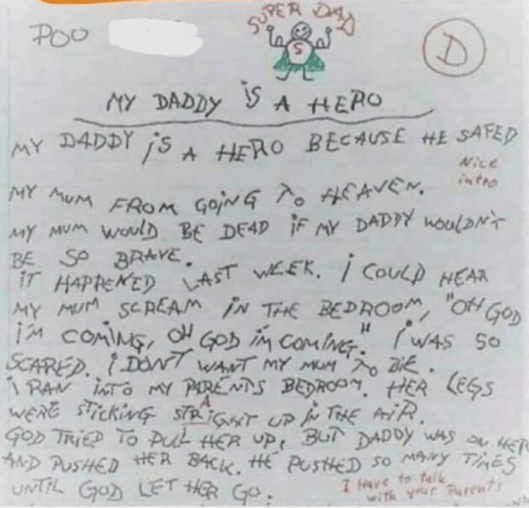 SUPER DAD
POO
S
D
MY DADDY iS A HERO
MY DADDY iS A HERO BECAUSE HE SAFED
Nice
intro
MY MUM FROM GOiNG TO HEAVEN.
MY MUM WOULD BE DEAD iF MY DADDY WOULDN'T
BE SO BRAVE.
iT HAPPENED LAST WEEK. i COULD HEAR
MY MUM SCREAM iN THE BEDROOM, "OH GOD
i'M COMiNG, OH GOD iM COMiNG." i WAS SO
SCARED. i DON'T WANT MY MUM TO DiE.
i RAN iNTO MY PARENTS BEDROOM. HER LEGS
A
WERE STiCKiNG STRiGHT UP iN THE AiR.
GOD TRiED TO PULL HER UP, BUT DADDY WAS ON HER
AND PUSHED HER BACK. HE PUSHED SO MANY TiMES
UNTiL GOD LET HER GO.
I Have to talk
with your Parents